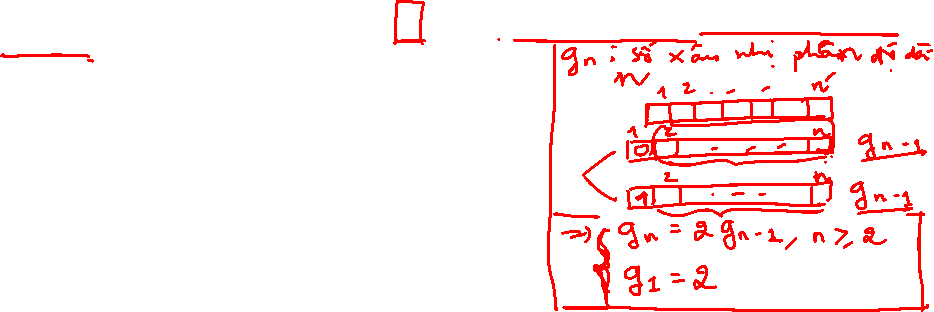 gn : số xâu nhị phân độ dài
n
1 2 . - - n
1 2 n
0 - - - gn-1
2 n
1 . - - gn-1
=> gn = 2 gn-1, n ≥ 2
g1 = 2